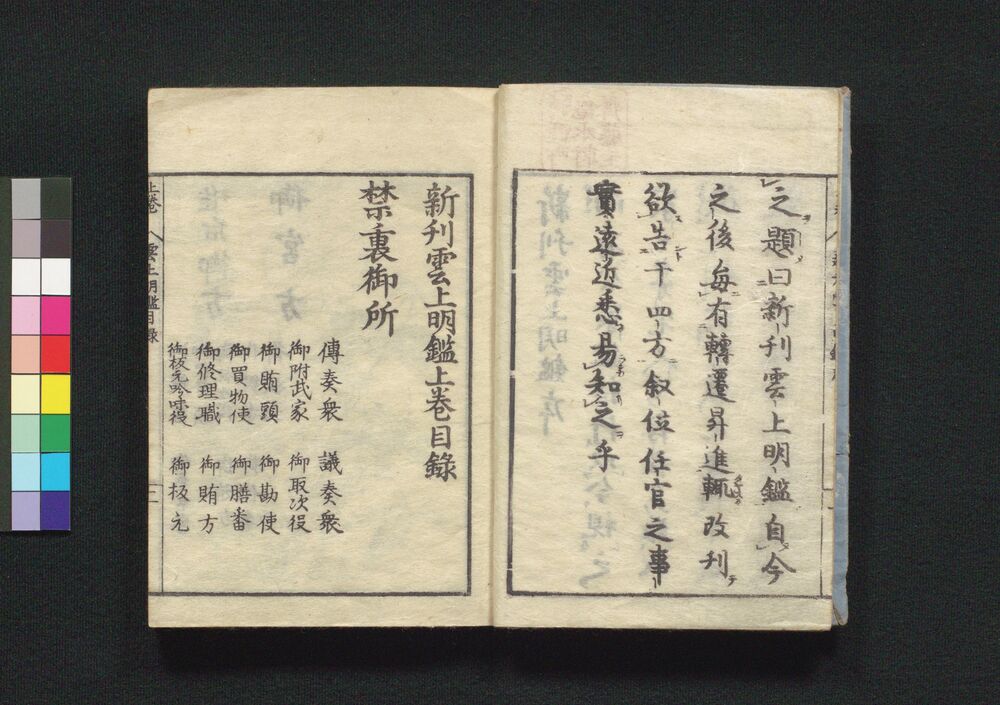 之題曰新刊雲上明鑑自今
之後每有轉遷昇進輙改刊
欲告于四方叙位任官之事
實遠近悉易知之乎
新刊雲上明鑑上巻目錄
禁裏御所
傳奏衆 議奏衆
御附武家 御取次役
御賄頭 御勘使
御買物使 御膳番
御修理職 御賄方
御板元吟味役 御板元
上巻 雲上明鑑目錄